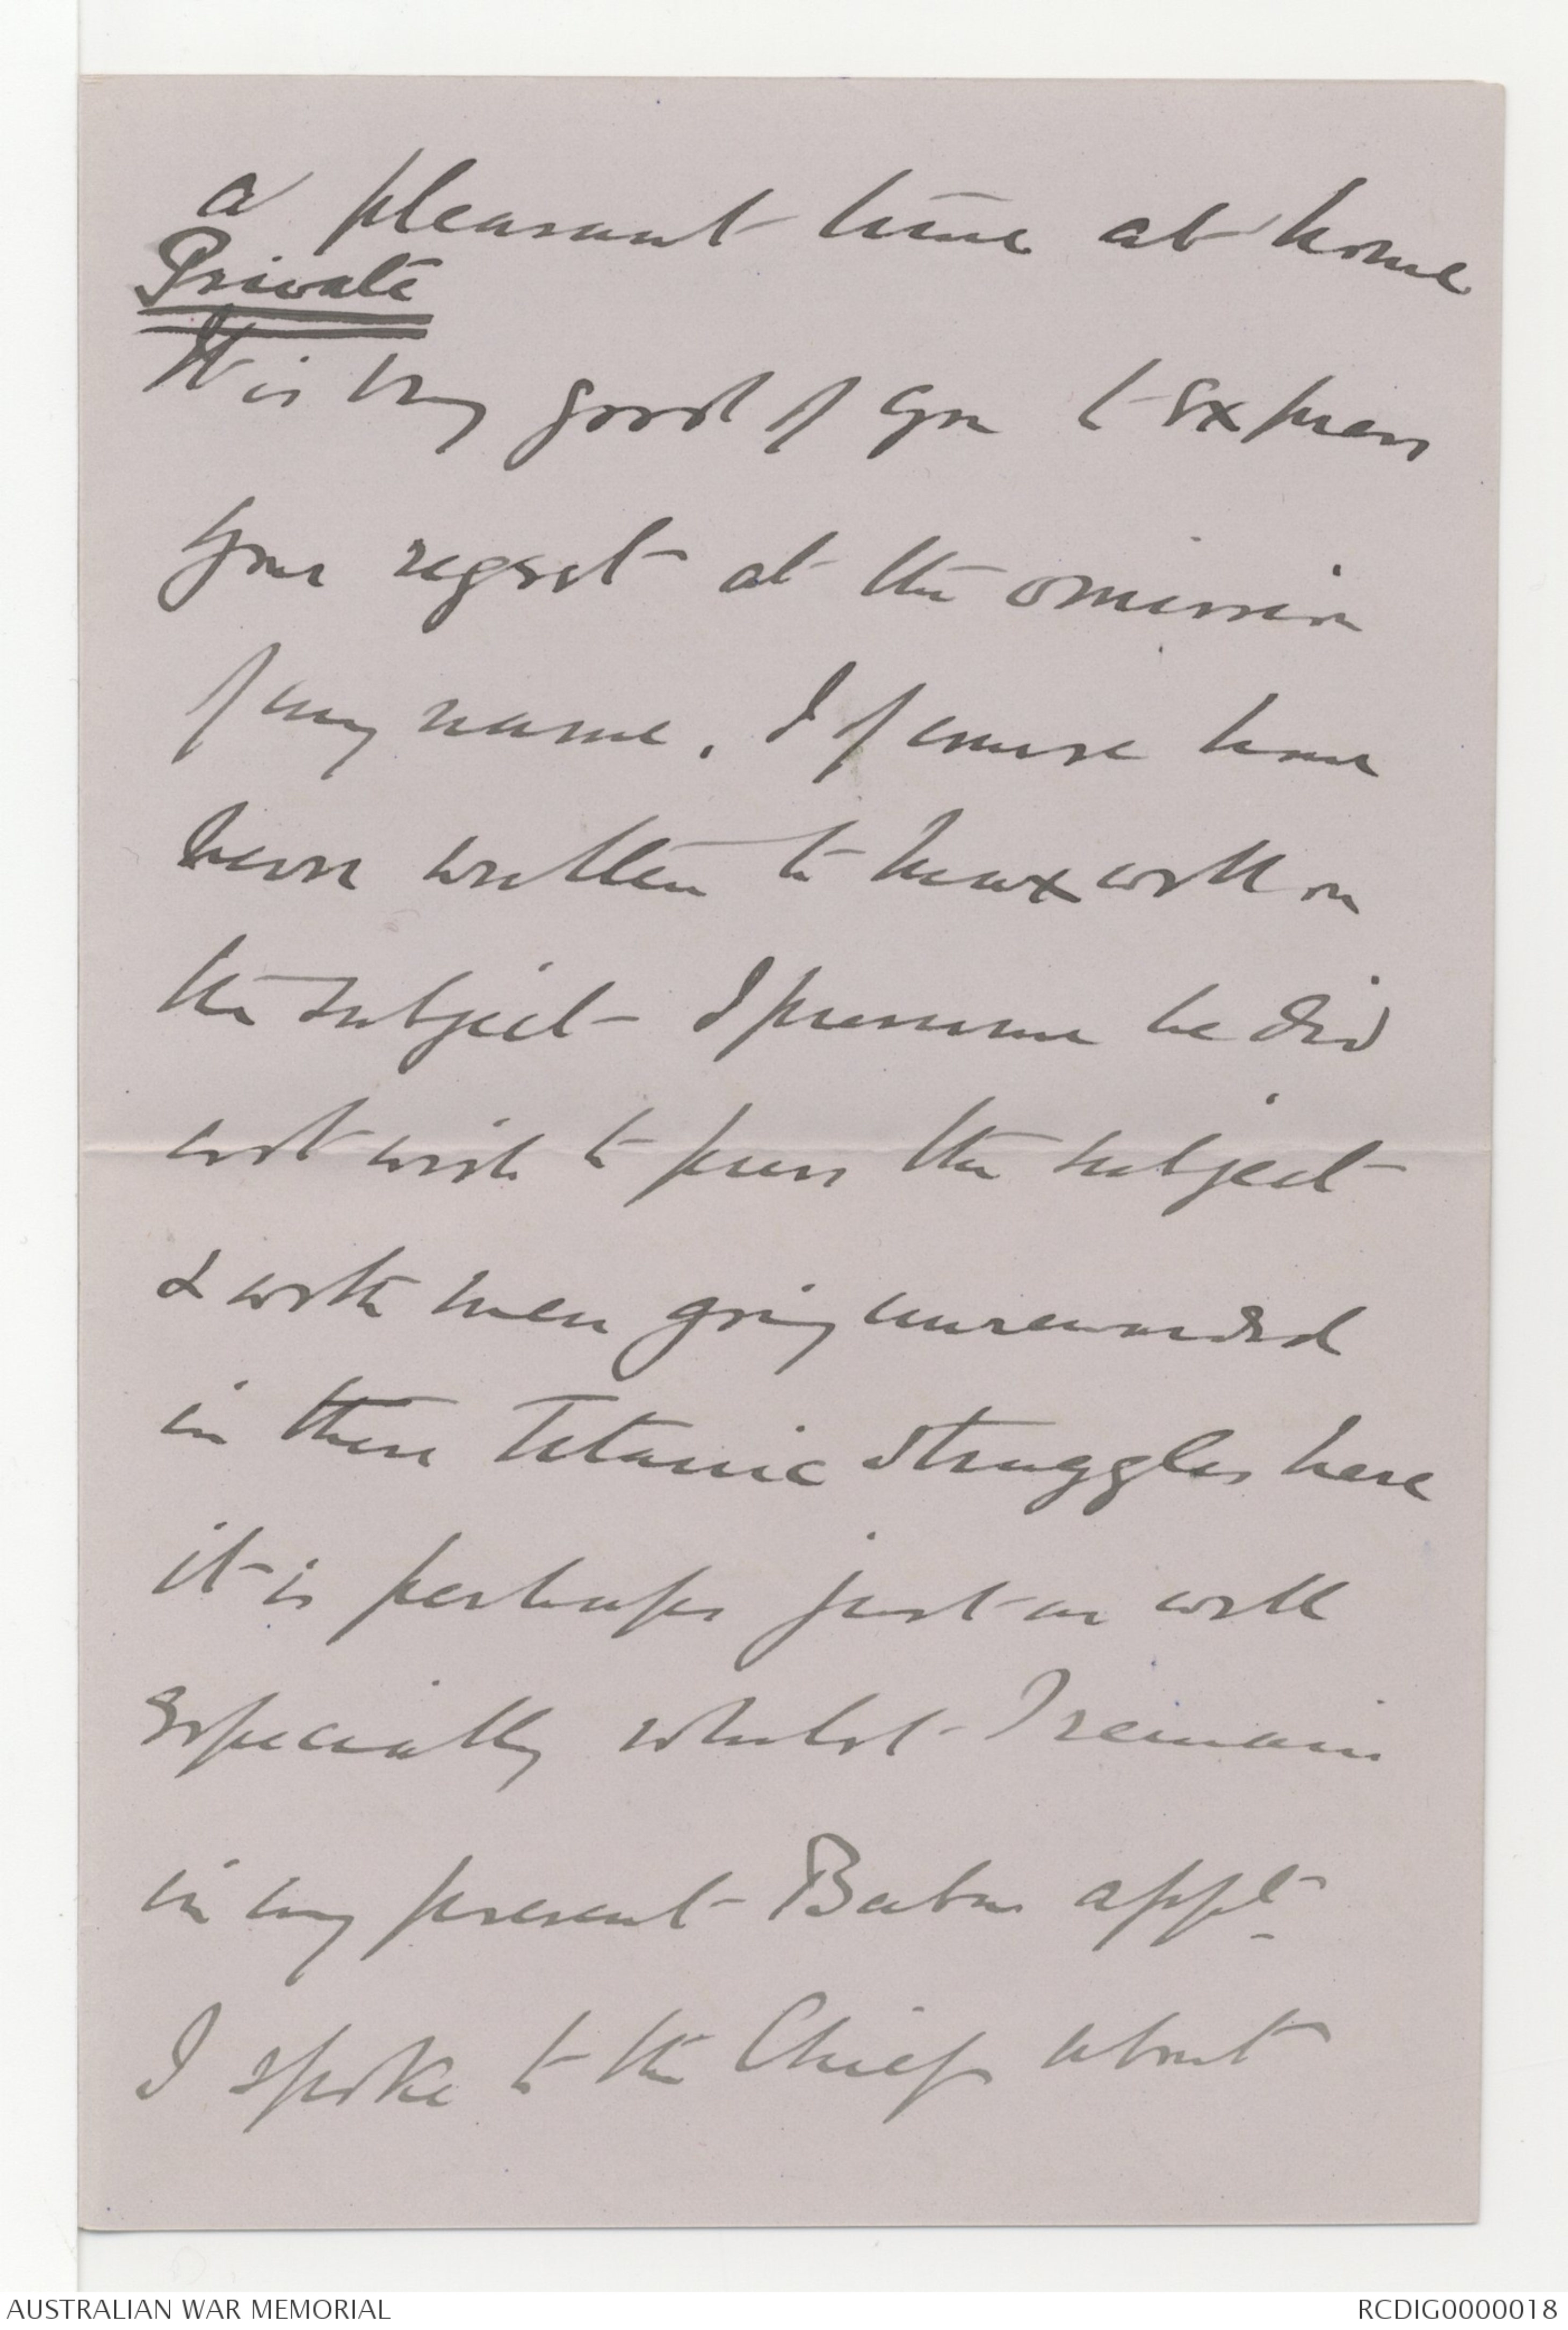 a pleasant time at home
Private
It is very good of you to express
your regret at the omission
of my name. I of course have
never written to Maxwell on
the subject - I presume he did
not wish to press the subject
& with men going unrewarded
in these Titanic struggles here
it is perhaps just as well
especially whilst I remain
in my present appt
I spoke to the Chief about
AUSTRALIAN WAR MEMORIAL
RCDIG0000018